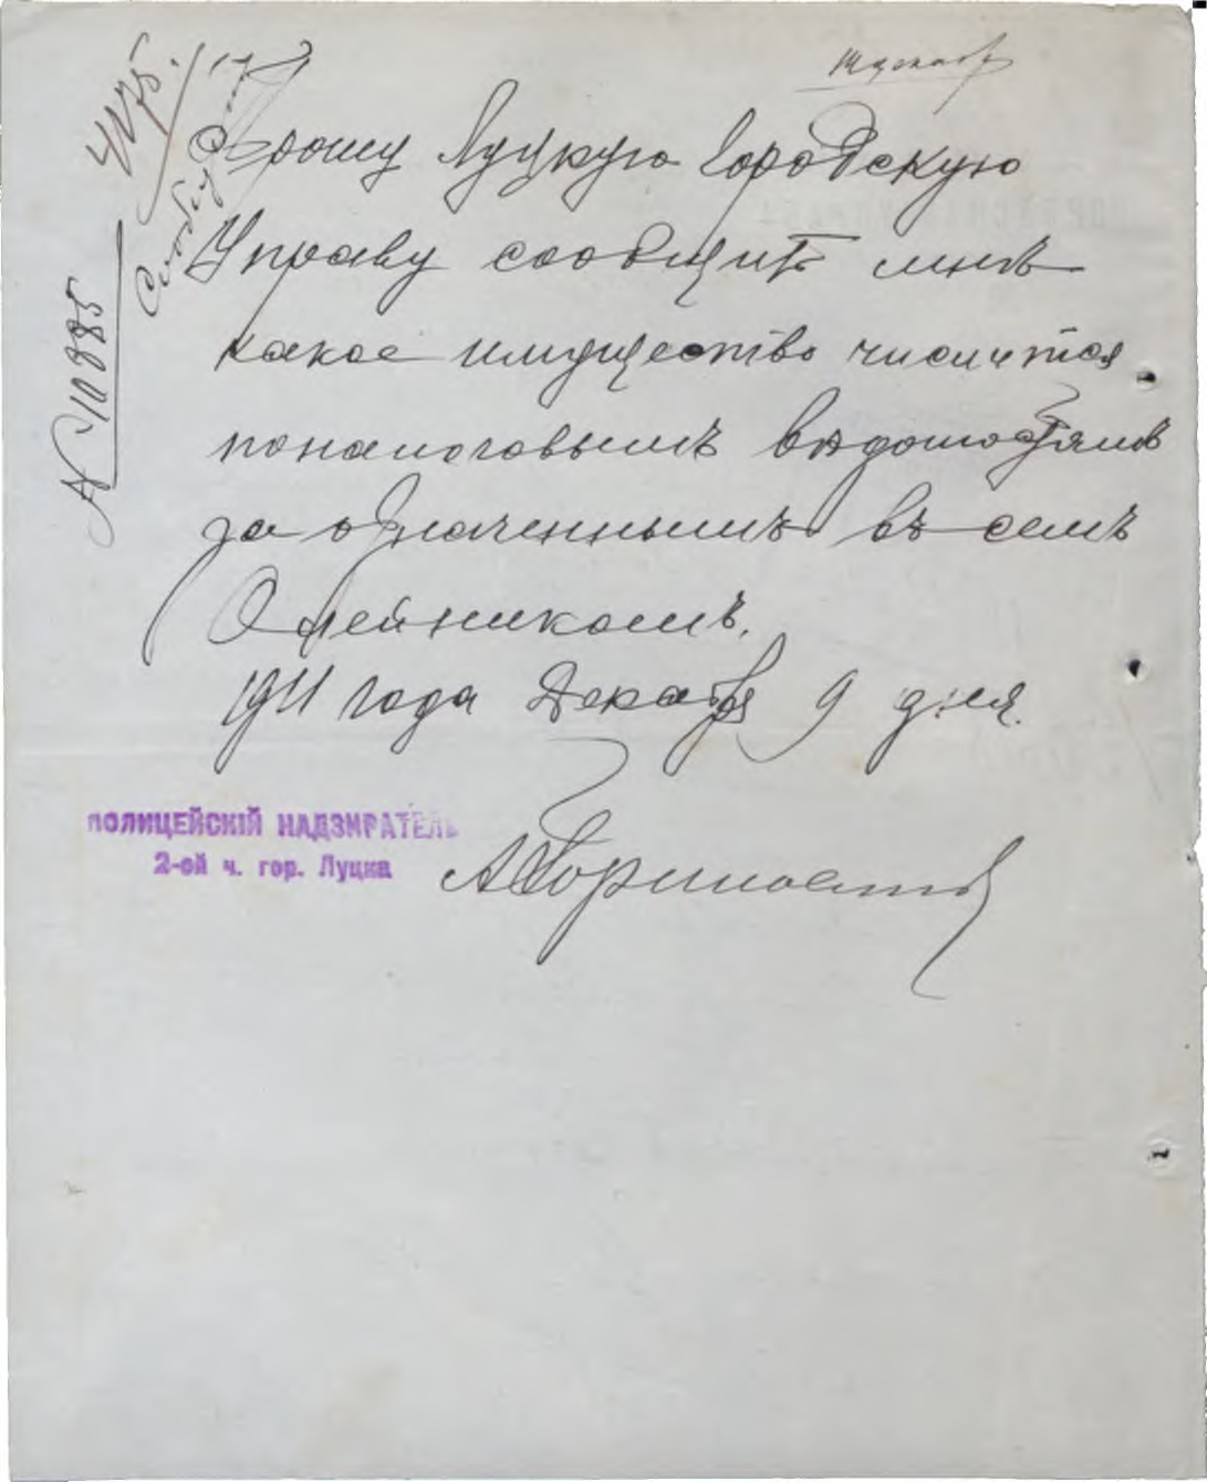 4175.
Сообщ
№ 10885
Прошу Луцкую Городскую
Управу сообщить мнѣ
какое имущество числится
поналоговымъ вѣдомостямъ
за означеннымъ въ семъ
Олейникомъ.
1911 года Декабря 9 дня.
ПОЛИЦЕЙСКІЙ НАДЗИРАТЕЛЬ
2-ой ч. гор. Луцка